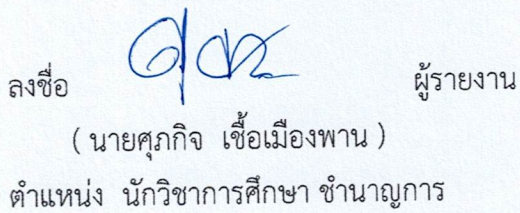 ลงชื่อ ผู้รายงาน
( นายศุภกิจ เชื้อเมืองพาน )
ตำแหน่ง นักวิชาการศึกษา ชำนาญการ